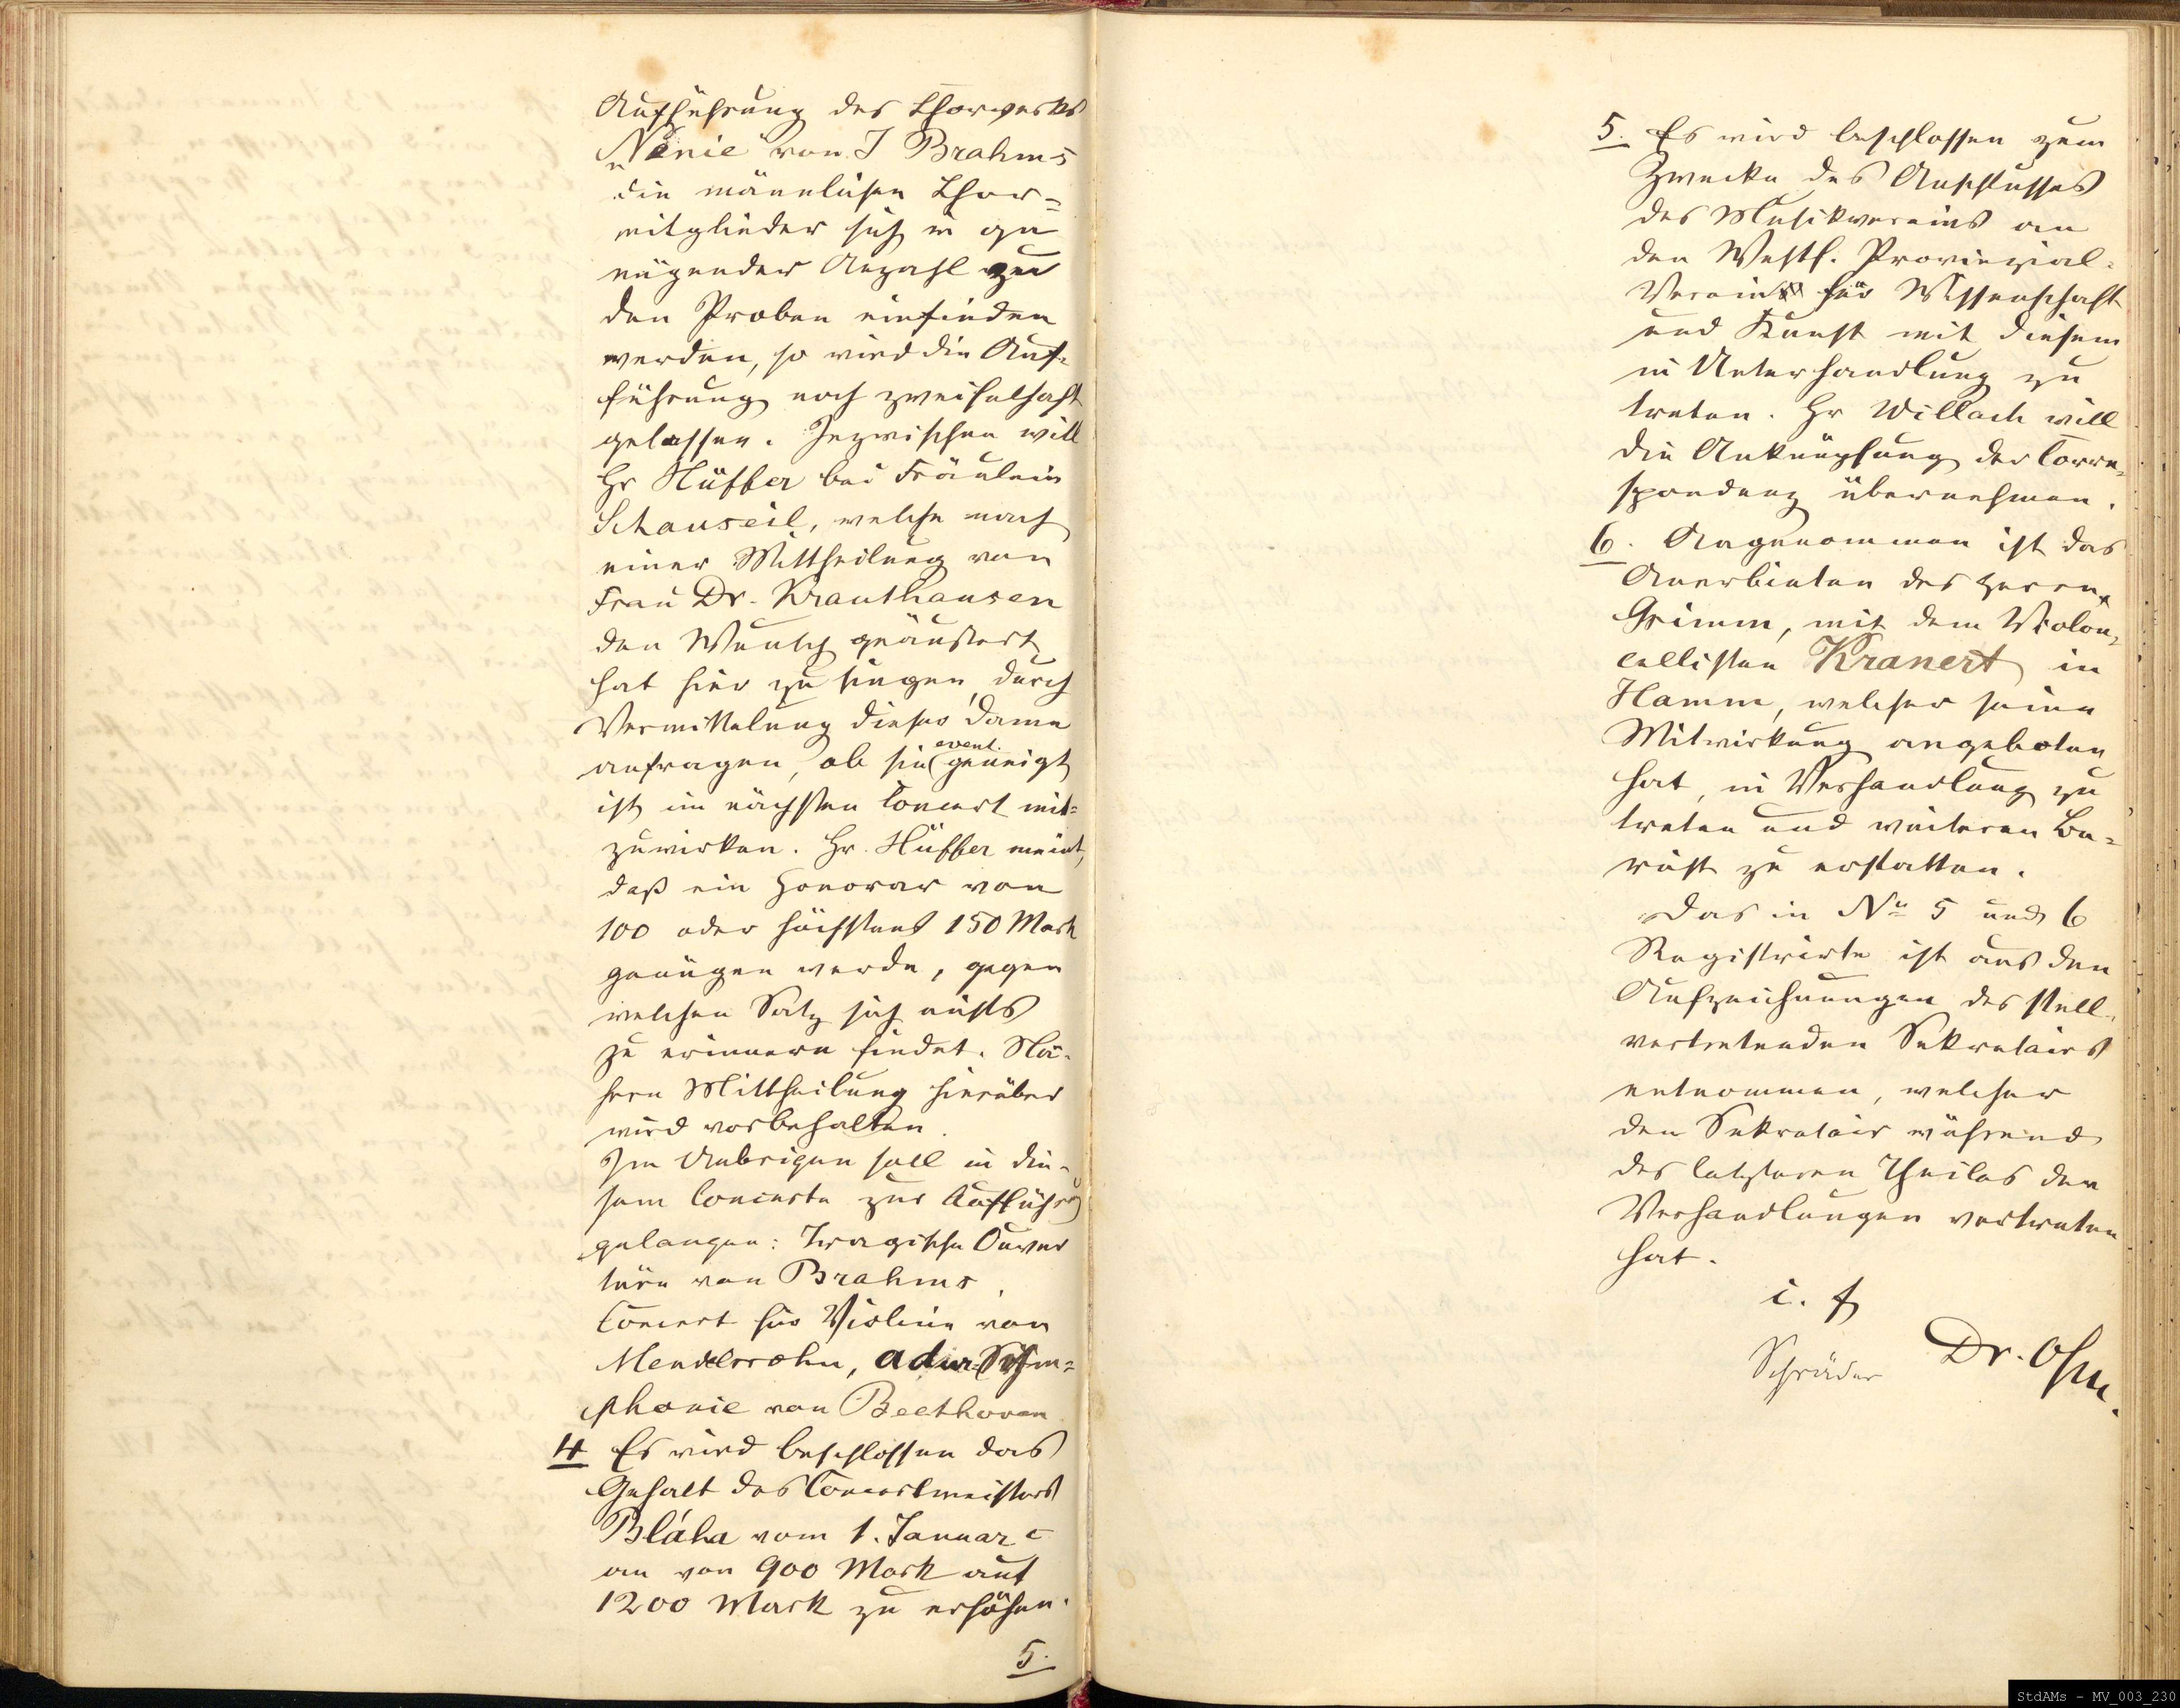 Aufführung des Chorwerks
„Nänie“ von J Brahms
die männlichen Chor=
mitglieder sich in ge
nügender Anzahl zu
den Proben einfinden
werden, so wird die Auf=
führung noch zweifelhaft
gelassen. Inzwischen will
Hr Hüffer bei Fräulein
Schauseil, welche nach
einer Mittheilung von
Frau Dr. Krauthausen
den Wunsch geäußert
hat hier zu singen, durch
Vermittelung dieser Dame
anfragen, ob sie event. geneigt
ist im nächsten Concert mit=
zuwirken. Hr. Hüffer meint,
daß ein Honorar von
100 oder höchstens 150 Mark
genügen werde, gegen
welchen Satz sich nichts
zu erinnern findet. Nä=
here Mittheilung hierüber
wird vorbehalten.
Im Uebrigen soll in die=
sem Concerte zur Aufführung
gelangen: Tragische Ouver
türe von Brahms,
Concert für Violine von
Mendelssohn, Adur Sym=
phonie von Beethoven
4 Es wird beschlossen das
Gehalt des Concertmeisters
Bláha vom 1. Januar c
an von 900 Mark auf
1200 Mark zu erhöhen.
5.
5. Es wird beschlossen zum
Zwecke des Anschlusses
des Musikvereins an
den Westf. Provinzial=
Verein für Wissenschaft
und Kunst mit diesem
in Unterhandlung zu
treten. Hr Willach will
die Anknüpfung der Corre=
spondenz übernehmen.
6. Angenommen ist das
Anerbieten des Herrn
Grimm, mit dem Violon=
cellisten Kranert in
Hamm, welcher seine
Mitwirkung angeboten
hat, in Verhandlung zu
treten und weiteren Be=
richt zu erstatten.
Das in No 5 und 6
Registrirte ist aus den
Aufzeichnungen des stell=
vertretenden Sekretairs
entnommen, welcher
den Sekretair während
des letzteren Theiles der
Verhandlungen vertreten
hat.
Schräder Dr. Ohm.
StdAMs - MV_003_230